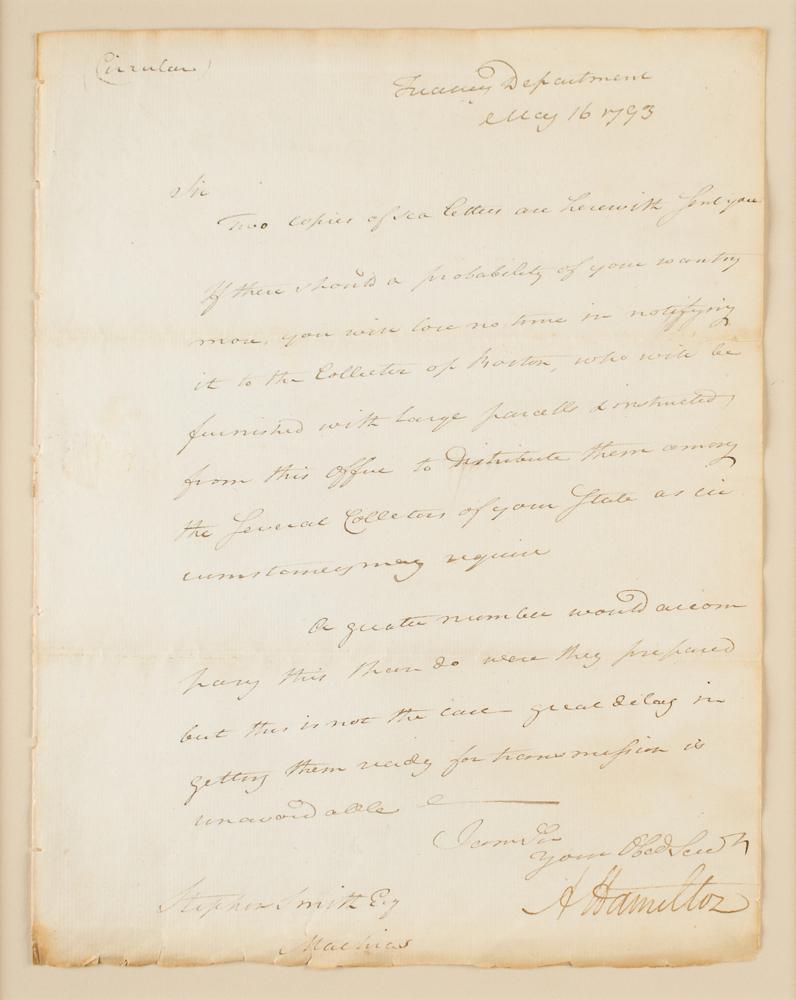 (Circular)
Treasury Department
May 16 1793
Sir
Two copies of sea letters are herewith sent you
If there should a probability of your wanting
more, you will lose no time in notifying
it to the Collector of Boston, who will be
furnished with large parcells & instructed,
from this Office to distribute them among
the several Collectors of your State as cir
cumstances may require
A greater number would accom
pany this than do were they prepared
but this is not the case great delay in
getting them ready for transmission is
unavoidable
I am Sir
Your Obed Servt
A Hamilton
Stephen Smith Esq
Machias